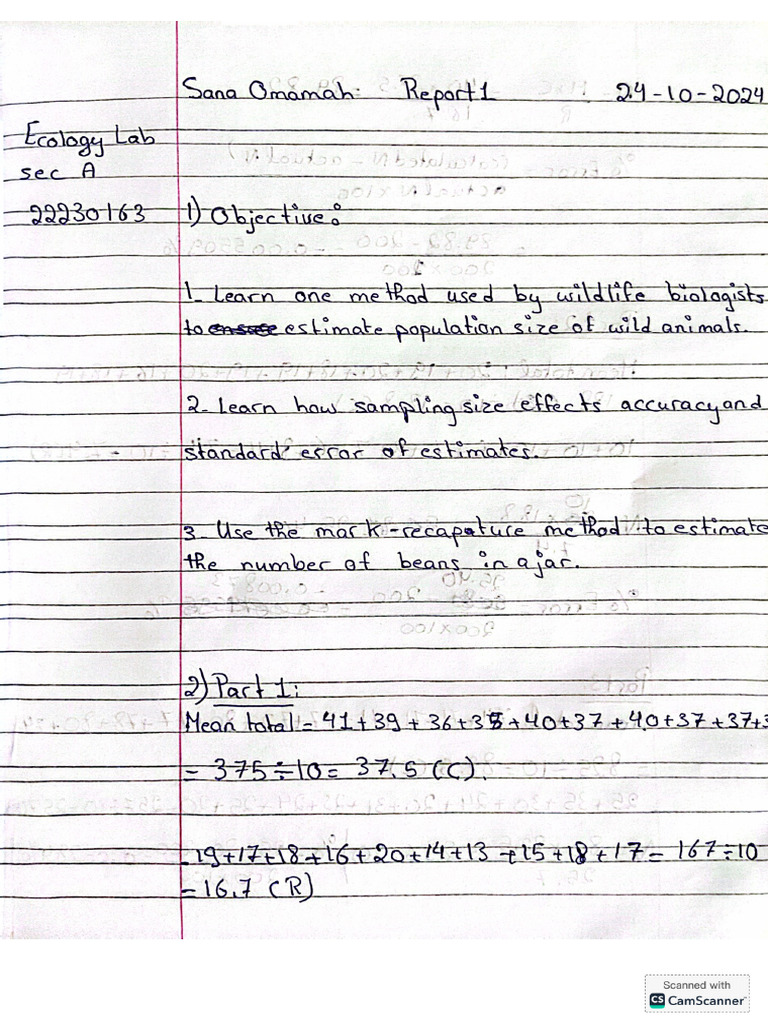 Sana Omamah: Report 1 24-10-2024
Ecology Lab
sec A
22230163 1) Objective:
1- Learn one method used by wildlife biologists
to estimate population size of wild animals.
2- Learn how sampling size effects accuracy and
standard error of estimates.
3- Use the mark-recapature method to estimate
the number of beans in a jar.
2) Part 1:
Mean total = 41+39+36+35+40+37+40+37+37+3
= 375÷10= 37.5 (C)
-19+17+18+16+20+14+13+15+18+17= 167÷10
=16.7 (R)
Scanned with
CS CamScanner